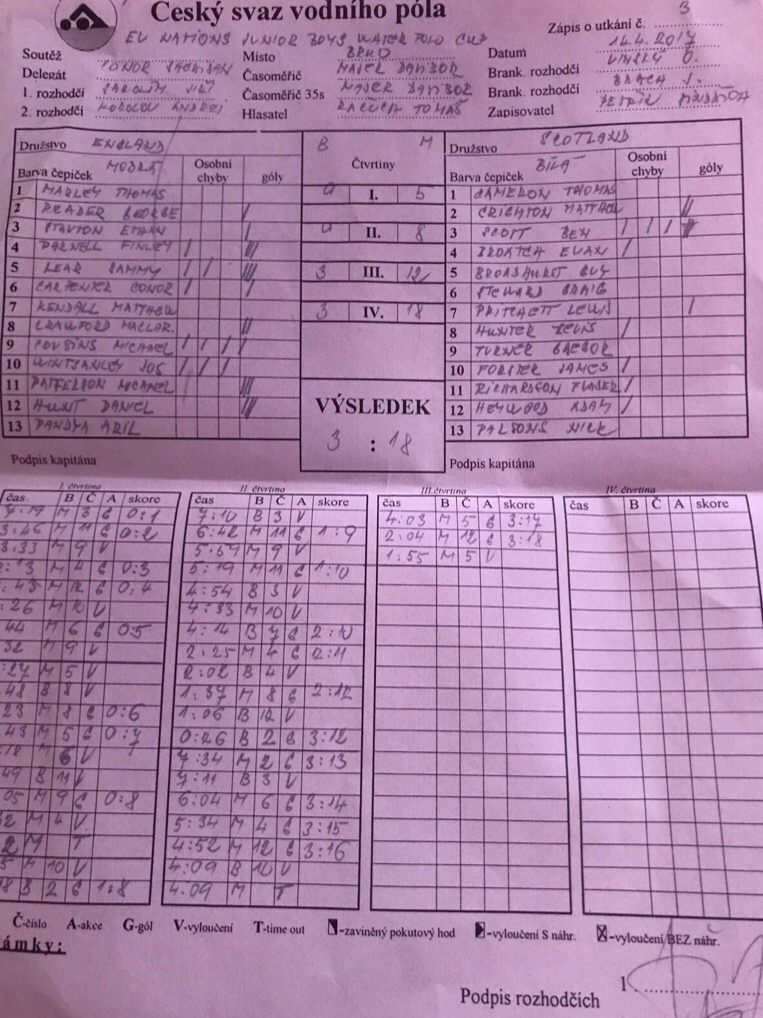 Český svaz vodního póla
Zápis o utkání č. 3
EU NATIONS JUNIOR BOYS WATER POLO CUP
Soutěž
Místo BRNO
Datum 14.4.2017
Delegát
Časoměřič MAJER DANBOR
Brank. rozhodčí
1. rozhodčí
Časoměřič 35s MAJER DANBOR
Brank. rozhodčí
2. rozhodčí
Hlasatel TOMÁŠ
Zapisovatel
Družstvo ENGLAND
B M
Družstvo SCOTLAND
Barva čepiček MODRÁ Osobní chyby góly
Čtvrtiny
Barva čepiček BÍLÁ Osobní chyby góly
1 MARLEY THOMAS
2 READER GEORGE /
3 STATTON ETHAN /
4 DARNELL FINLEY / ///
5 LEAR SAMMY / / ///
6 CARPENTER CONOR / //
7 KENDALL MATTHEW
8 CRAWFORD MALLAR. //
9 COUSINS MICHAEL / / / /
10 WINSTANLEY JOS / / /
11 PATTERSON MICHAEL ///
12 HUNT DANIEL ///
13 PANDYA ARIL
0 I. 5
0 II. 8
3 III. 12
3 IV. 18
VÝSLEDEK
3 : 18
1 CAMERON THOMAS
2 CRICHTON MATTHEW //
3 SCOTT BEN / / /
4 BROATCH EVAN /
5 BROADHURST GUY
6 STEWARD CRAIG
7 PRITCHETT LEWIS /
8 HUNTER LEWIS /
9 TURNER
10 FORSTER JAMES /
11 RICHARDSON FRASER /
12 HEYWOOD ADAM /
13 PARSONS NICK
Podpis kapitána
Podpis kapitána
I. čtvrtina
čas B Č A skore
7.19 M 3 G 0:1
3:46 M 11 G 0:2
3.33 M 9 V
:13 M 4 G 0:3
:43 M 12 G 0:4
:26 M 10 V
44 M 6 G 0:5
32 M 9 V
:27 M 5 V
48 B 8 V
23 M 8 G 0:6
43 M 5 G 0:7
:18 M 6 V
49 B 11 V
05 M 9 G 0:8
2 M 4 V
2 M T
5 M 10 V
8 B 2 G 1:8
II. čtvrtina
čas B Č A skore
7:10 B 3 V
6:42 M 11 G 1:9
5.59 M 9 V
5:19 M 11 G 1:10
4:54 B 3 V
4:33 M 10 V
4:14 B 7 G 2:10
2:25 M 4 G 2:11
2:02 B 4 V
1:37 M 8 G 2:12
1:06 B 12 V
0:26 B 2 G 3:12
7:34 M 2 G 3:13
7:11 B 3 V
6:04 M 6 G 3:14
5:34 M 4 G 3:15
4:52 M 12 G 3:16
4:09 B 10 V
4.09 M T
III. čtvrtina
čas B Č A skore
4:03 M 5 G 3:17
2:04 M 12 G 3:18
1:55 M 5 V
IV. čtvrtina
čas B Č A skore
Č-číslo A-akce G-gól V-vyloučení T-time out -zaviněný pokutový hod -vyloučení S náhr. -vyloučení BEZ náhr.
ámky:
Podpis rozhodčích
1